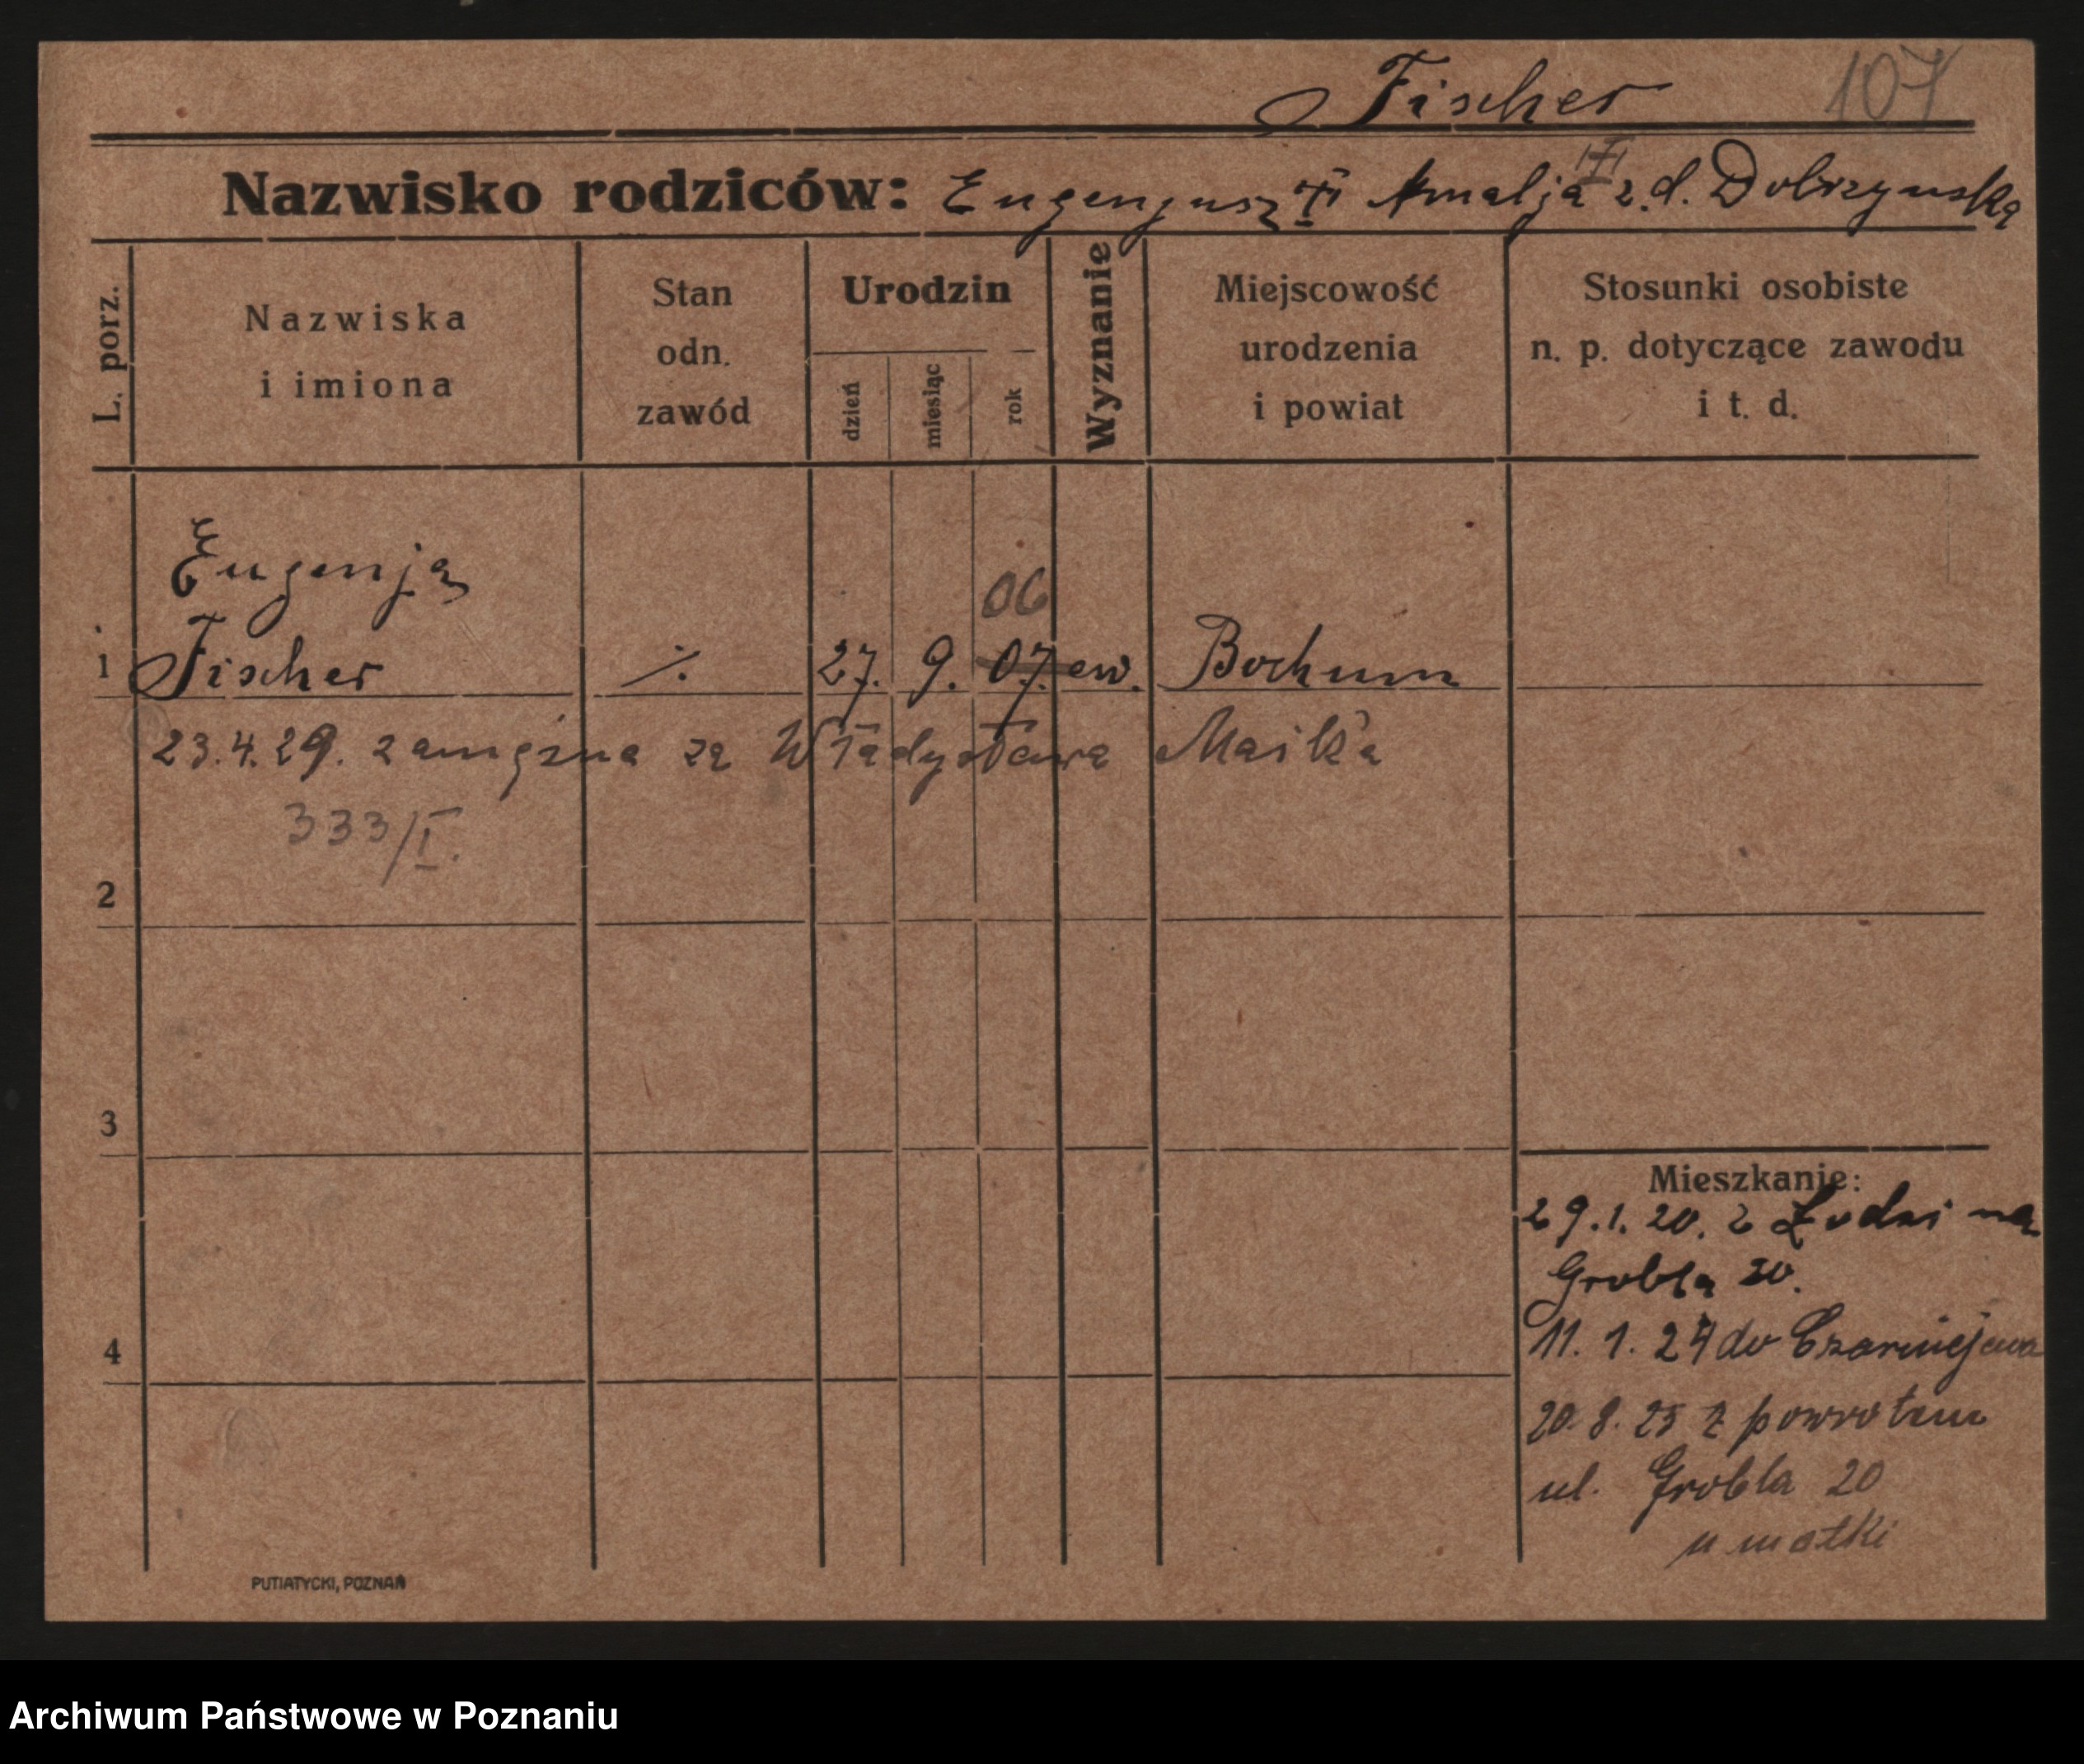 Fischer 107
Nazwisko rodziców: Eugenjusz Amalja z.d. Dobrzynska
L. porz.
Nazwiska
i imiona
Stan
odn.
zawód
Urodzin
dzień
miesiąc
rok
Wyznanie
Miejscowość
urodzenia
i powiat
Stosunki osobiste
n. p. dotyczące zawodu
i t. d.
Eugenja
06
1 Fischer ·/. 27. 9. 07. ew. Bochum
23.4.29. zamężna za Władysława Maik'a
333/I.
2
3
Mieszkanie:
29.1.20. z Łodzi na
Grobla 20.
4
11. 1. 24 do Czarniejewa
20.8.25 z powrotem
ul. Grobla 20
u matki
PUTIATYCKI, POZNAŃ
Archiwum Państwowe w Poznaniu